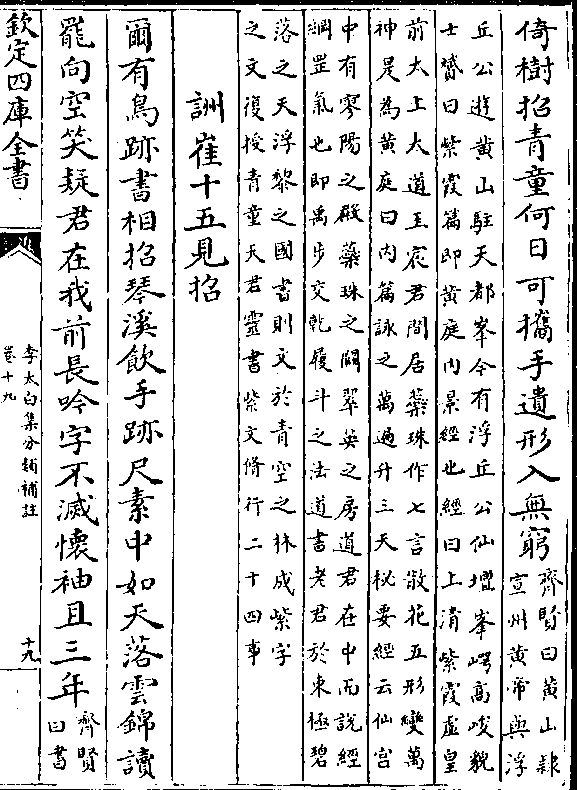 倚樹招青童何日可攜手遺形入無窮齊賢曰黃山隷
宣州黃帝與浮
丘公遊黃山駐天都峯今有浮丘公仙壇峯崿高峻貌
士贇曰紫霞篇即黃庭內景經也經曰上清紫霞虛皇
前太上大道玉宸君閒居蘂珠作七言散花五形變萬
神是為黃庭曰內篇詠之萬過升三天秘要經云仙宮
中有寥陽之殿蘂珠之闕翠英之房道君在中而說經
綱罡氣也即禹步交乾履斗之法道書老君於東極碧
落之天浮黎之國書則文於青空之林成紫字
之文復授青童天君靈書紫文脩行二十四事
詶崔十五見招
爾有鳥跡書相招琴溪飲手跡尺素中如天落雲錦讀
罷向空笑疑君在我前長吟字不滅懷袖且三年齊賢
曰書
欽定四庫全書
李太白集分類補註
卷十九
十九